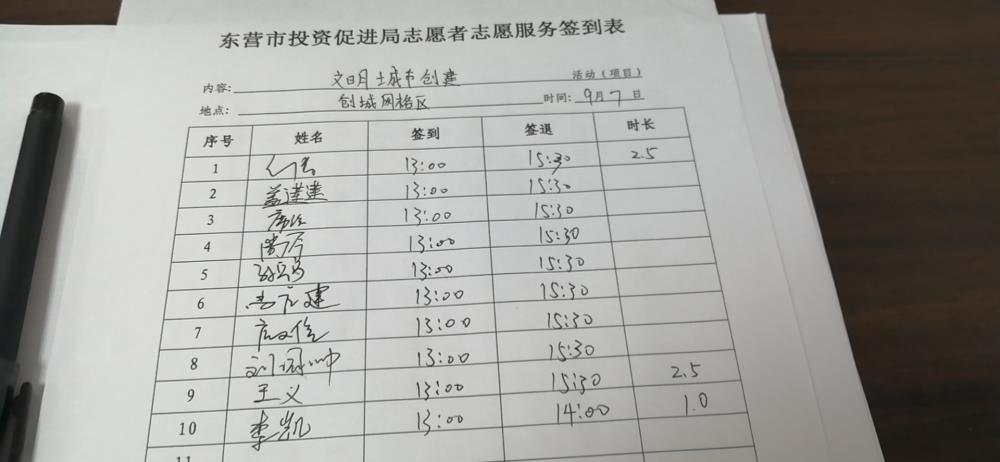 东营市投资促进局志愿者志愿服务签到表
内容: 文明城市创建 活动（项目）
地点: 创城网格区 时间: 9月7日
序号 姓名 签到 签退 时长
1 13:00 15:30 2.5
2 盖建建 13:00 15:30
3 13:00 15:30
4 13:00 15:30
5 13:00 15:30
6 13:00 15:30
7 13:00 15:30
8 13:00 15:30
9 王义 13:00 15:30 2.5
10 李凯 13:00 14:00 1.0
11